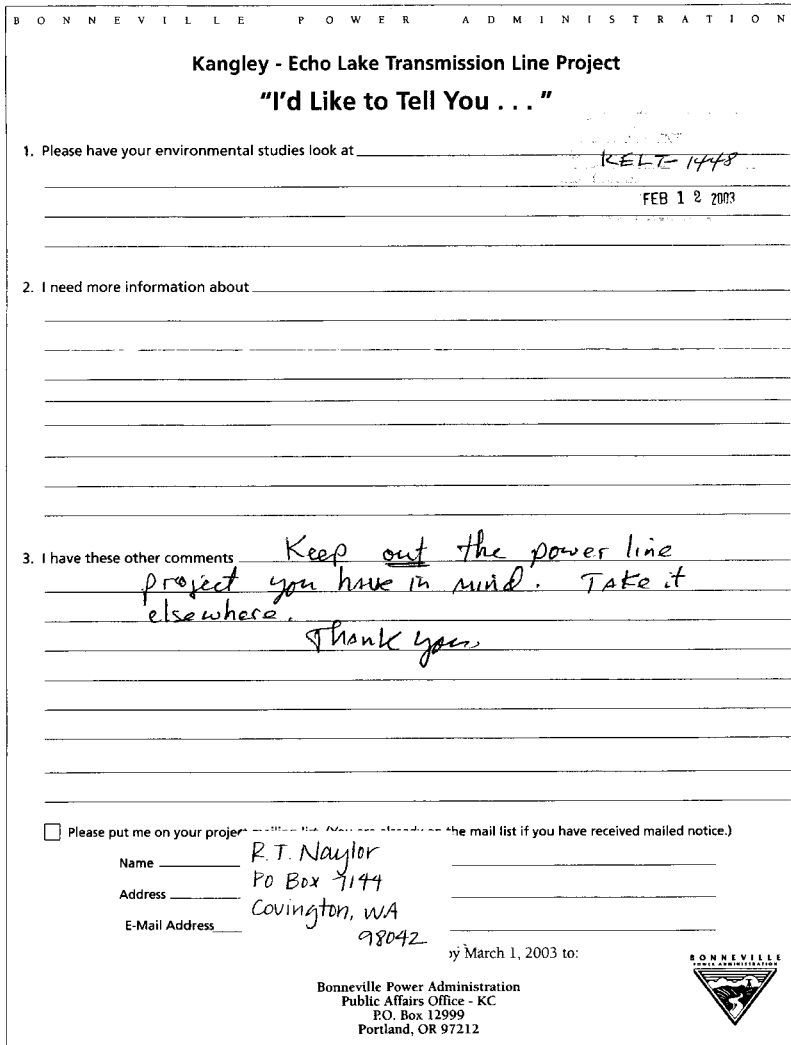 BONNEVILLE POWER ADMINISTRATION
Kangley - Echo Lake Transmission Line Project
"I'd Like to Tell You . . . "
1. Please have your environmental studies look at
KELT-1448
FEB 12 2003
2. I need more information about
3. I have these other comments Keep out the power line
project you have in mind. Take it
elsewhere.
Thank you
Please put me on your project the mail list if you have received mailed notice.)
Name R.T. Naylor
Address PO Box 7144
E-Mail Address Covington, WA
98042
by March 1, 2003 to:
Bonneville Power Administration
Public Affairs Office - KC
P.O. Box 12999
Portland, OR 97212
BONNEVILLE
POWER ADMINISTRATION